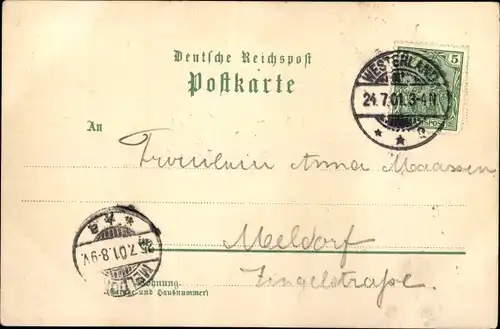 Deutsche Reichspost
Postkarte
5
WESTERLAND
24.7.01.3-4N
An
Fräulein Anna Maassen
Meldorf
Zingelstraße.
7.01.8-9V.
Wohnung
(Straße und Hausnummer)